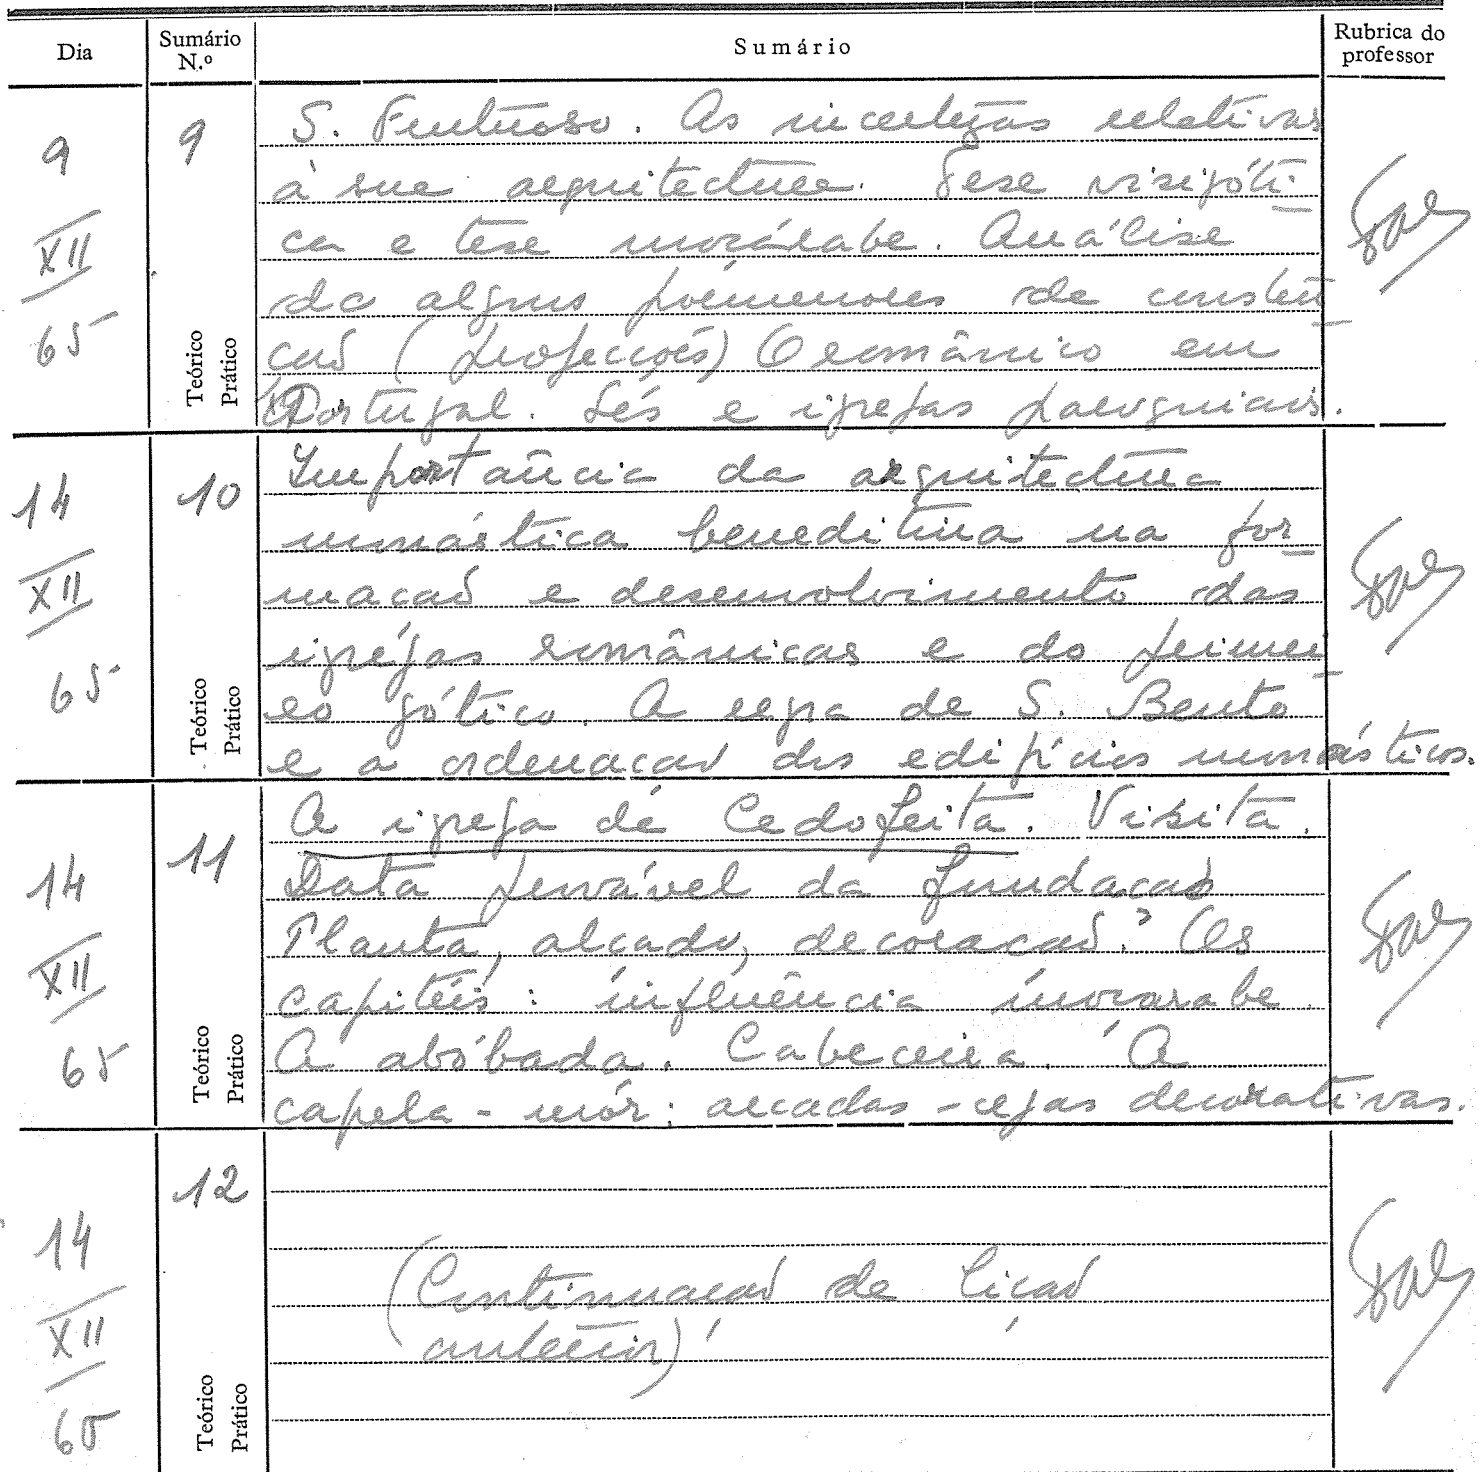 Dia
Sumário N.º
Sumário
Rubrica do professor
9
XII
65
9
Teórico
Prático
S. Frutuoso. As incertezas relativas
à sua arquitectura. Tese visigóti-
ca e tese moçárabe. Análise
de alguns pormenores de constru-
ção (projecções) O românico em
Portugal. Sés e igrejas paroquiais.
14
XII
65
10
Teórico
Prático
Importância da arquitectura
monástica beneditina na for-
mação e desenvolvimento das
igrejas românicas e do primei-
ro gótico. A regra de S. Bento
e a ordenação dos edifícios monásticos.
14
XII
65
11
Teórico
Prático
A igreja de Cedofeita. Visita.
Data provável da fundação.
Planta, alçado, decoração. Os
capitéis: influência moçarabe.
A abóbada. Cabeceira. A
capela-mór: arcadas-cegas decorativas.
14
XII
65
12
Teórico
Prático
(Continuação da lição
anterior)